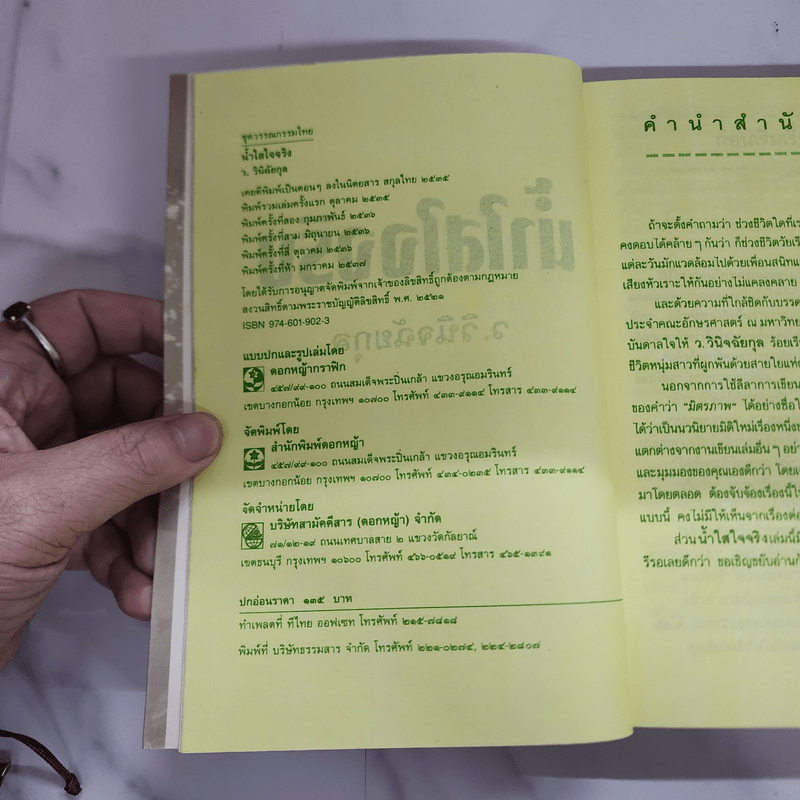 ชุดวรรณกรรมไทย
น้ำใสใจจริง
ว. วินิจฉัยกุล
เคยตีพิมพ์เป็นตอนๆ ลงในนิตยสาร สกุลไทย ๒๕๓๕
พิมพ์รวมเล่มครั้งแรก ตุลาคม ๒๕๓๕
พิมพ์ครั้งที่สอง กุมภาพันธ์ ๒๕๓๖
พิมพ์ครั้งที่สาม มิถุนายน ๒๕๓๖
พิมพ์ครั้งที่สี่ ตุลาคม ๒๕๓๖
พิมพ์ครั้งที่ห้า มกราคม ๒๕๓๗
โดยได้รับการอนุญาตจัดพิมพ์จากเจ้าของลิขสิทธิ์ถูกต้องตามกฎหมาย
สงวนสิทธิ์ตามพระราชบัญญัติลิขสิทธิ์ พ.ศ. ๒๕๒๑
ISBN 974-601-902-3
แบบปกและรูปเล่มโดย
ดอกหญ้ากราฟิก
๔๕๗/๙๙-๑๐๐ ถนนสมเด็จพระปิ่นเกล้า แขวงอรุณอมรินทร์
เขตบางกอกน้อย กรุงเทพฯ ๑๐๗๐๐ โทรศัพท์ ๔๓๓-๙๑๑๔ โทรสาร ๔๓๓-๙๑๑๔
จัดพิมพ์โดย
สำนักพิมพ์ดอกหญ้า
๔๕๗/๙๙-๑๐๐ ถนนสมเด็จพระปิ่นเกล้า แขวงอรุณอมรินทร์
เขตบางกอกน้อย กรุงเทพฯ ๑๐๗๐๐ โทรศัพท์ ๔๓๔-๐๒๓๕ โทรสาร ๔๓๓-๙๑๑๔
จัดจำหน่ายโดย
บริษัทสามัคคีสาร (ดอกหญ้า) จำกัด
๗๑/๑๒-๑๙ ถนนเทศบาลสาย ๒ แขวงวัดกัลยาณ์
เขตธนบุรี กรุงเทพฯ ๑๐๖๐๐ โทรศัพท์ ๔๖๖-๐๕๑๙ โทรสาร ๔๖๕-๑๓๙๑
ปกอ่อนราคา ๑๓๕ บาท
ทำเพลตที่ ทีไทย ออฟเซท โทรศัพท์ ๒๑๕-๗๘๑๘
พิมพ์ที่ บริษัทธรรมสาร จำกัด โทรศัพท์ ๒๒๑-๐๒๗๔, ๒๒๔-๒๘๐๗
คำนำสำนั
ถ้าจะตั้งคำถามว่า ช่วงชีวิตใดที่เร
คงตอบได้คล้ายๆ กันว่า ก็ช่วงชีวิตวัยเรี
แต่ละวันมักแวดล้อมไปด้วยเพื่อนสนิทแ
เสียงหัวเราะให้กันอย่างไม่แคลงคลาย
และด้วยความที่ใกล้ชิดกับบรรด
ประจำคณะอักษรศาสตร์ ณ มหาวิทย
บันดาลใจให้ ว.วินิจฉัยกุล ร้อยเรีย
ชีวิตหนุ่มสาวที่ผูกพันด้วยสายใยแห่ง
นอกจากการใช้ลีลาการเขียน
ของคำว่า “มิตรภาพ” ได้อย่างชื่อใ
ได้ว่าเป็นนวนิยายมิติใหม่เรื่องหนึ่งข
แตกต่างจากงานเขียนเล่มอื่นๆ อย่า
และมุมมองของคุณเองดีกว่า โดยเ
มาโดยตลอด ต้องจับจ้องเรื่องนี้ให้
แบบนี้ คงไม่มีให้เห็นจากเรื่องต่อ
ส่วนน้ำใสใจจริงเล่มนี้มี
รีรอเลยดีกว่า ขอเชิญขยับอ่านกั